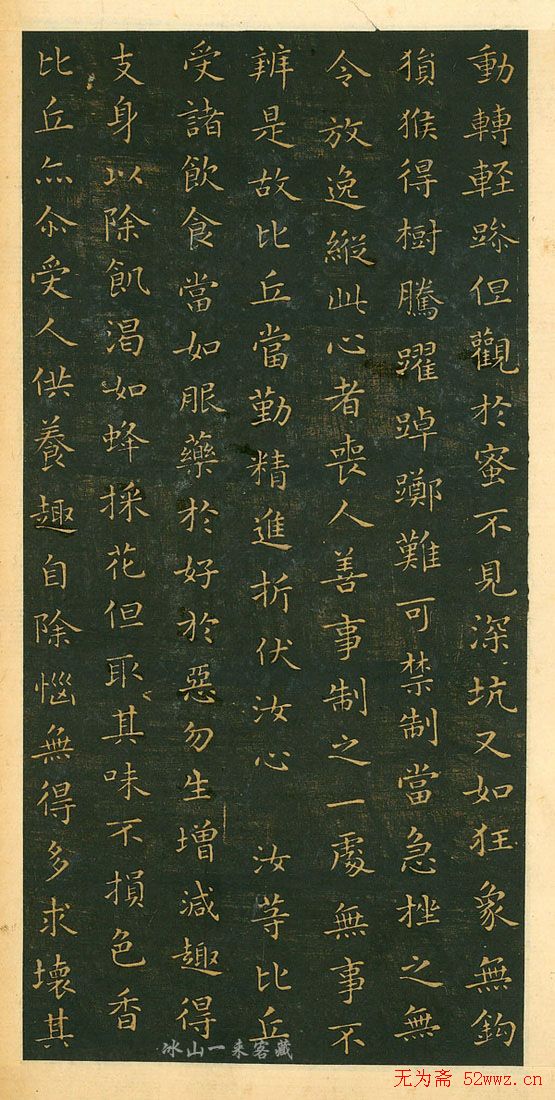 動轉輕躁但觀於蜜不見深坑又如狂象無鈎
猨猴得樹騰躍踔躑難可禁制當急挫之無
令放逸縱此心者喪人善事制之一處無事不
辦是故比丘當勤精進折伏汝心　汝等比丘
受諸飲食當如服藥於好於惡勿生增減趣得
支身以除飢渴如蜂採花但取其味不損色香
比丘亦尒受人供養趣自除惱無得多求壞其
冰山一来客藏
无为斋 52wwz.cn